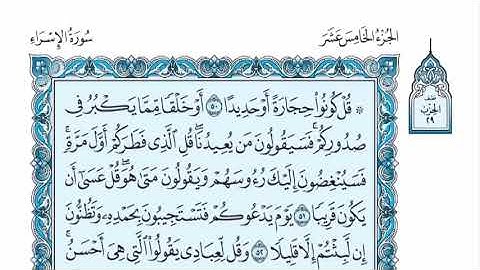 الجُزْءُ الخَامِسَ عَشَرَ
سُورَةُ الإِسْرَاءِ
نصف
الحزب
٢٩
۞ قُلْ كُونُوا۟ حِجَارَةً أَوْ حَدِيدًا ۝٥٠ أَوْ خَلْقًا مِّمَّا يَكْبُرُ فِى
صُدُورِكُمْ ۚ فَسَيَقُولُونَ مَن يُعِيدُنَا ۖ قُلِ ٱلَّذِى فَطَرَكُمْ أَوَّلَ مَرَّةٍ ۚ
فَسَيُنْغِضُونَ إِلَيْكَ رُءُوسَهُمْ وَيَقُولُونَ مَتَىٰ هُوَ ۖ قُلْ عَسَىٰٓ أَن
يَكُونَ قَرِيبًا ۝٥١ يَوْمَ يَدْعُوكُمْ فَتَسْتَجِيبُونَ بِحَمْدِهِۦ وَتَظُنُّونَ
إِن لَّبِثْتُمْ إِلَّا قَلِيلًا ۝٥٢ وَقُل لِّعِبَادِى يَقُولُوا۟ ٱلَّتِى هِىَ أَحْسَنُ ۚ